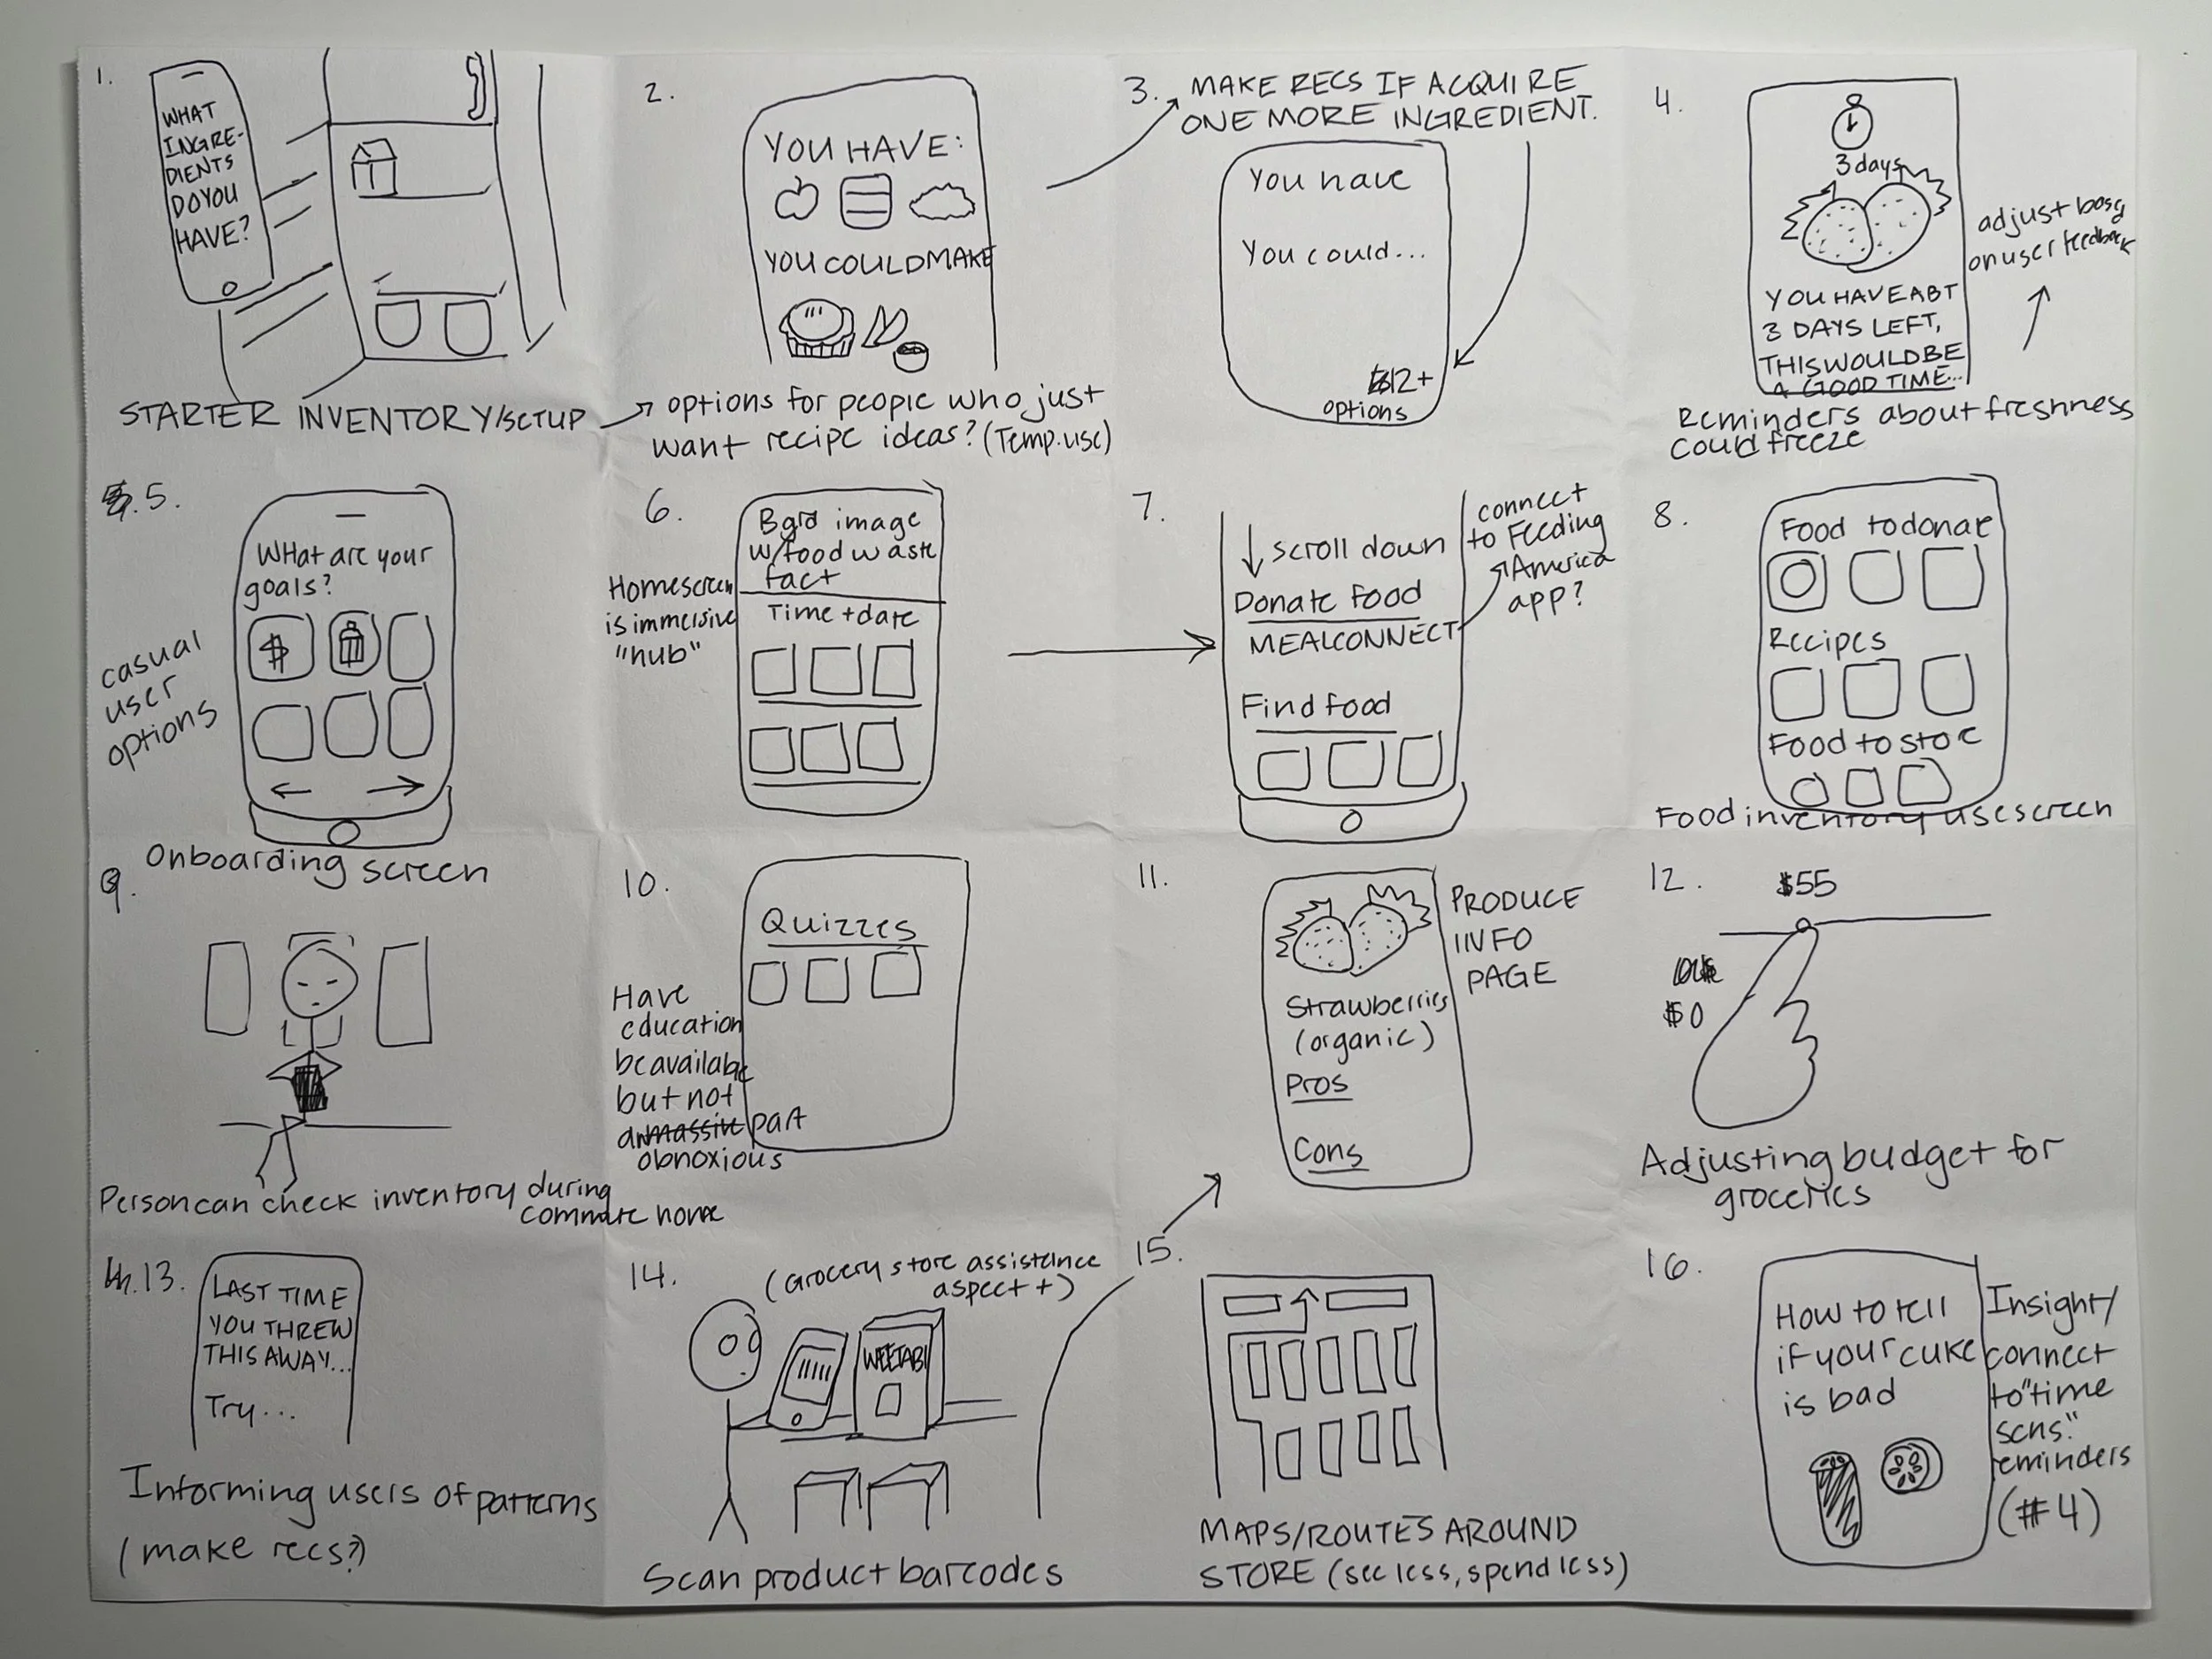 1.
WHAT
INGRE-
DIENTS
DO YOU
HAVE?
STARTER INVENTORY/SETUP
2.
YOU HAVE:
YOU COULD MAKE
options for people who just
want recipe ideas? (Temp. use)
3.
MAKE RECS IF ACQUIRE
ONE MORE INGREDIENT.
You have
You could...
12+
options
4.
3 days
YOU HAVE ABT
3 DAYS LEFT,
THIS WOULD BE
A GOOD TIME...
adjust based
on user feedback
Reminders about freshness
could freeze
5.
What are your
goals?
$
casual
user
options
Onboarding screen
6.
Bgrd image
w/food waste
fact
Time + date
Homescreen
is immersive
"hub"
7.
scroll down
Donate food
MEALCONNECT
Find food
connect
to Feeding
America
app?
8.
Food to donate
Recipes
Food to store
Food inventory use screen
9.
Person can check inventory during
commute home
10.
Quizzes
Have
education
be available
but not
a massive part
obnoxious
11.
Strawberries
(organic)
Pros
Cons
PRODUCE
INFO
PAGE
12.
$55
$0
Adjusting budget for
groceries
13.
LAST TIME
YOU THREW
THIS AWAY...
Try...
Informing users of patterns
(make recs?)
14.
(Grocery store assistance
aspect ++)
WEETABI
Scan product barcodes
15.
MAPS/ROUTES AROUND
STORE (see less, spend less)
16.
How to tell
if your cuke
is bad
Insight/
connect
to "time
sens."
reminders
(#4)